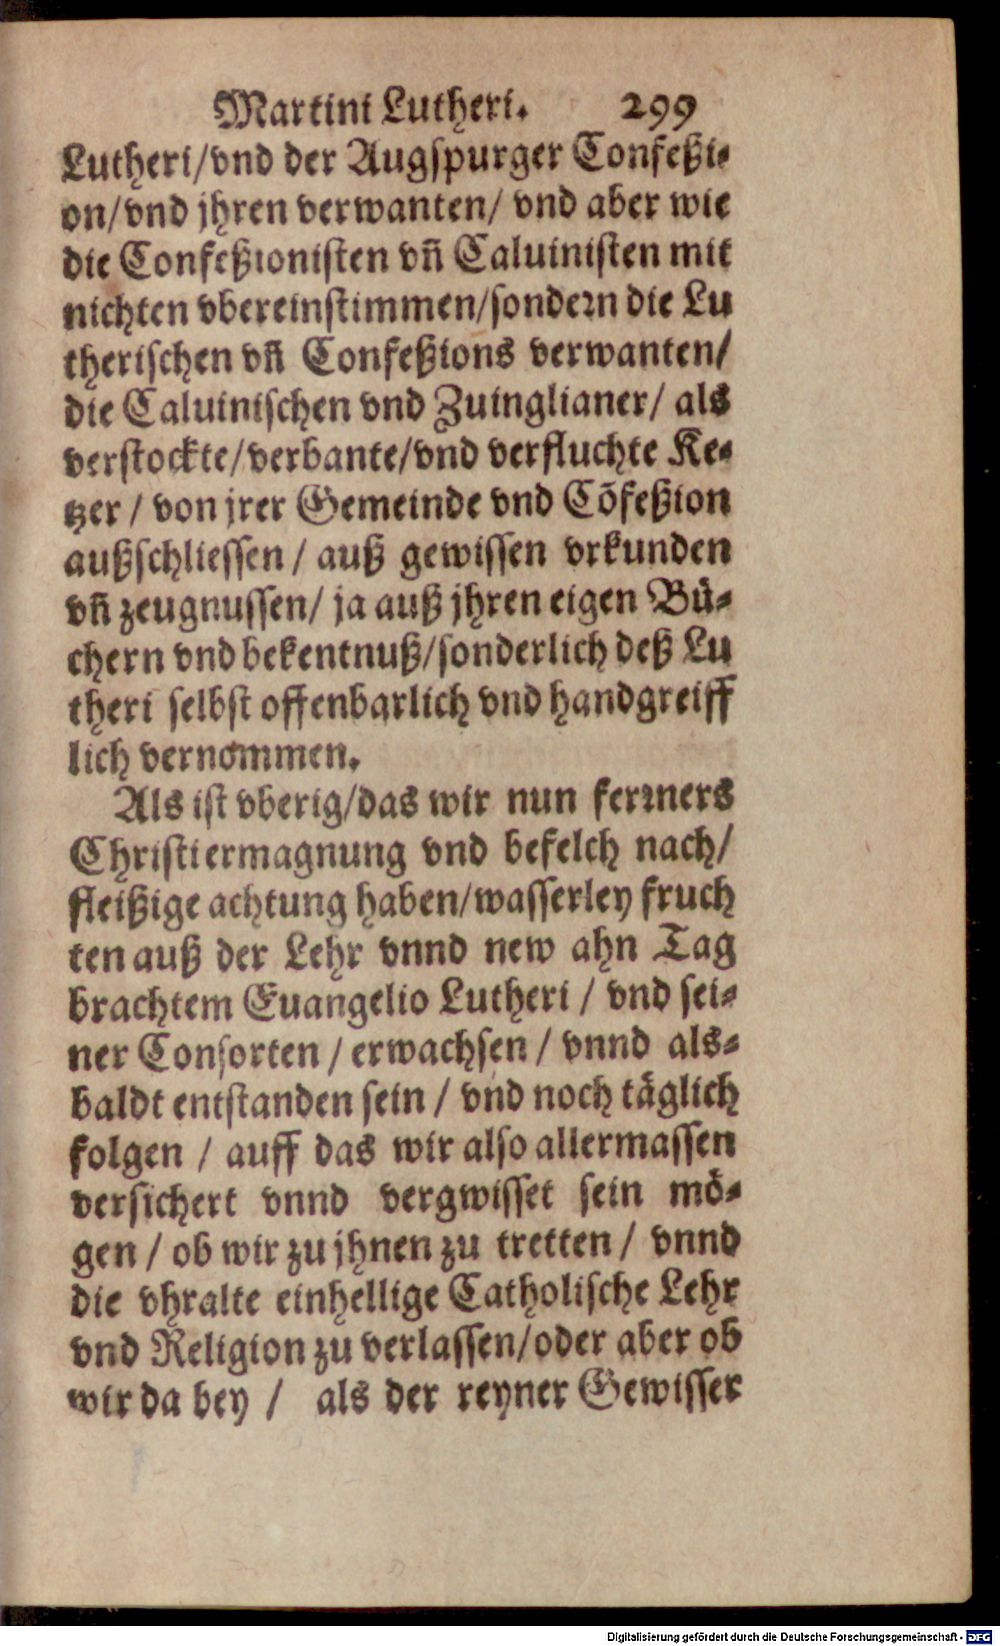 Martini Lutheri. 299
Lutheri/vnd der Augspurger Confeßi-
on/vnd jhren verwanten/ vnd aber wie
die Confeßionisten vñ Caluinisten mit
nichten vbereinstimmen/sondern die Lu
therischen vñ Confeßions verwanten/
die Caluinischen vnd Zuinglianer/ als
verstockte/verbante/vnd verfluchte Ke-
tzer / von jrer Gemeinde vnd Cõfeßion
außschliessen / auß gewissen vrkunden
vñ zeugnussen/ ja auß jhren eigen Bü-
chern vnd bekentnuß/sonderlich deß Lu
theri selbst offenbarlich vnd handgreiff
lich vernommen.
Als ist vberig/das wir nun ferrners
Christi ermagnung vnd befelch nach/
fleißige achtung haben/wasserley fruch
ten auß der Lehr vnnd new ahn Tag
brachtem Euangelio Lutheri / vnd sei-
ner Consorten / erwachsen / vnnd als-
baldt entstanden sein / vnd noch täglich
folgen / auff das wir also allermassen
versichert vnnd vergwisset sein mö-
gen / ob wir zu jhnen zu tretten / vnnd
die vhralte einhellige Catholische Lehr
vnd Religion zu verlassen/oder aber ob
wir da bey / als der reyner Gewisser
Digitalisierung gefördert durch die Deutsche Forschungsgemeinschaft - DFG